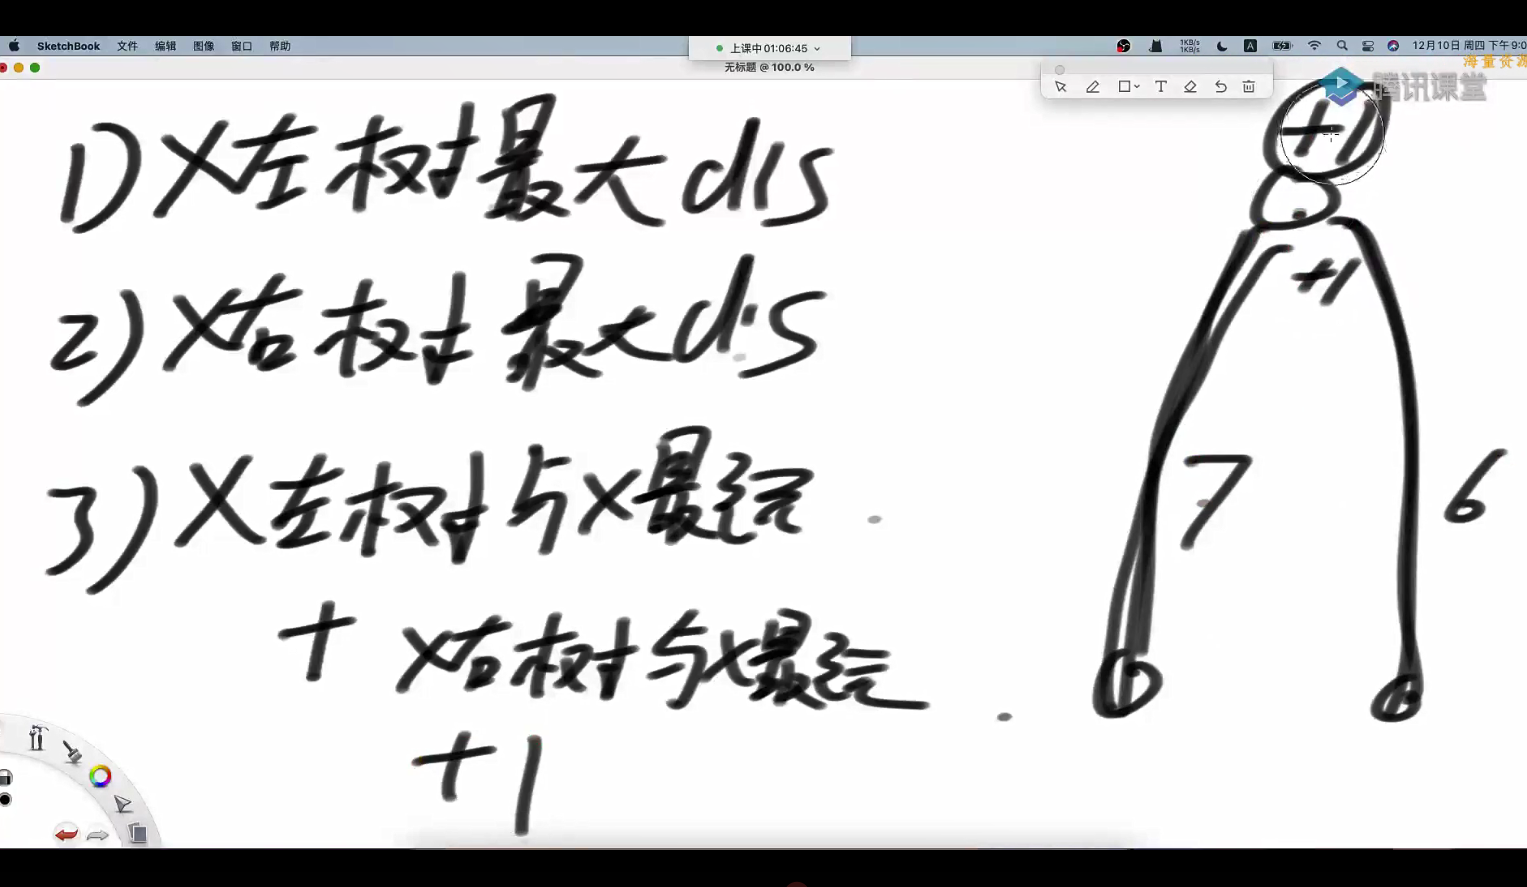 SketchBook 文件 编辑 图像 窗口 帮助
上课中 01:06:45
1KB/s
1KB/s
A
12月10日 周四 下午9:0
无标题 @ 100.0 %
海量资源
腾讯课堂
T
1) X左树最大dis
2) X右树最大dis
3) X左树与X最远
+ X右树与X最远
+1
+1
+1
7
6